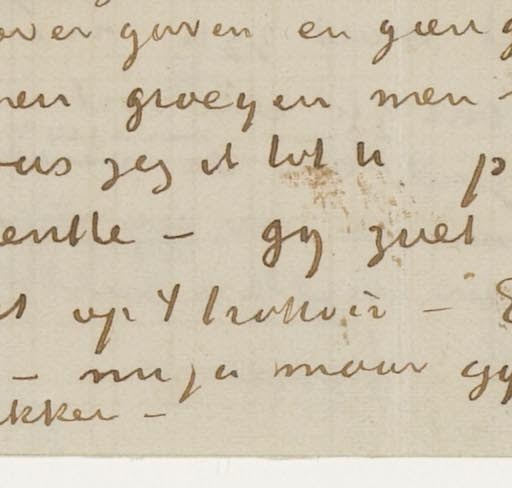 over gaven en geen g
nen groeyen men -
us zeg it tot u p
entle - gy zuet
t op 't trottoir - 8
- nu ja maar gy
kker -